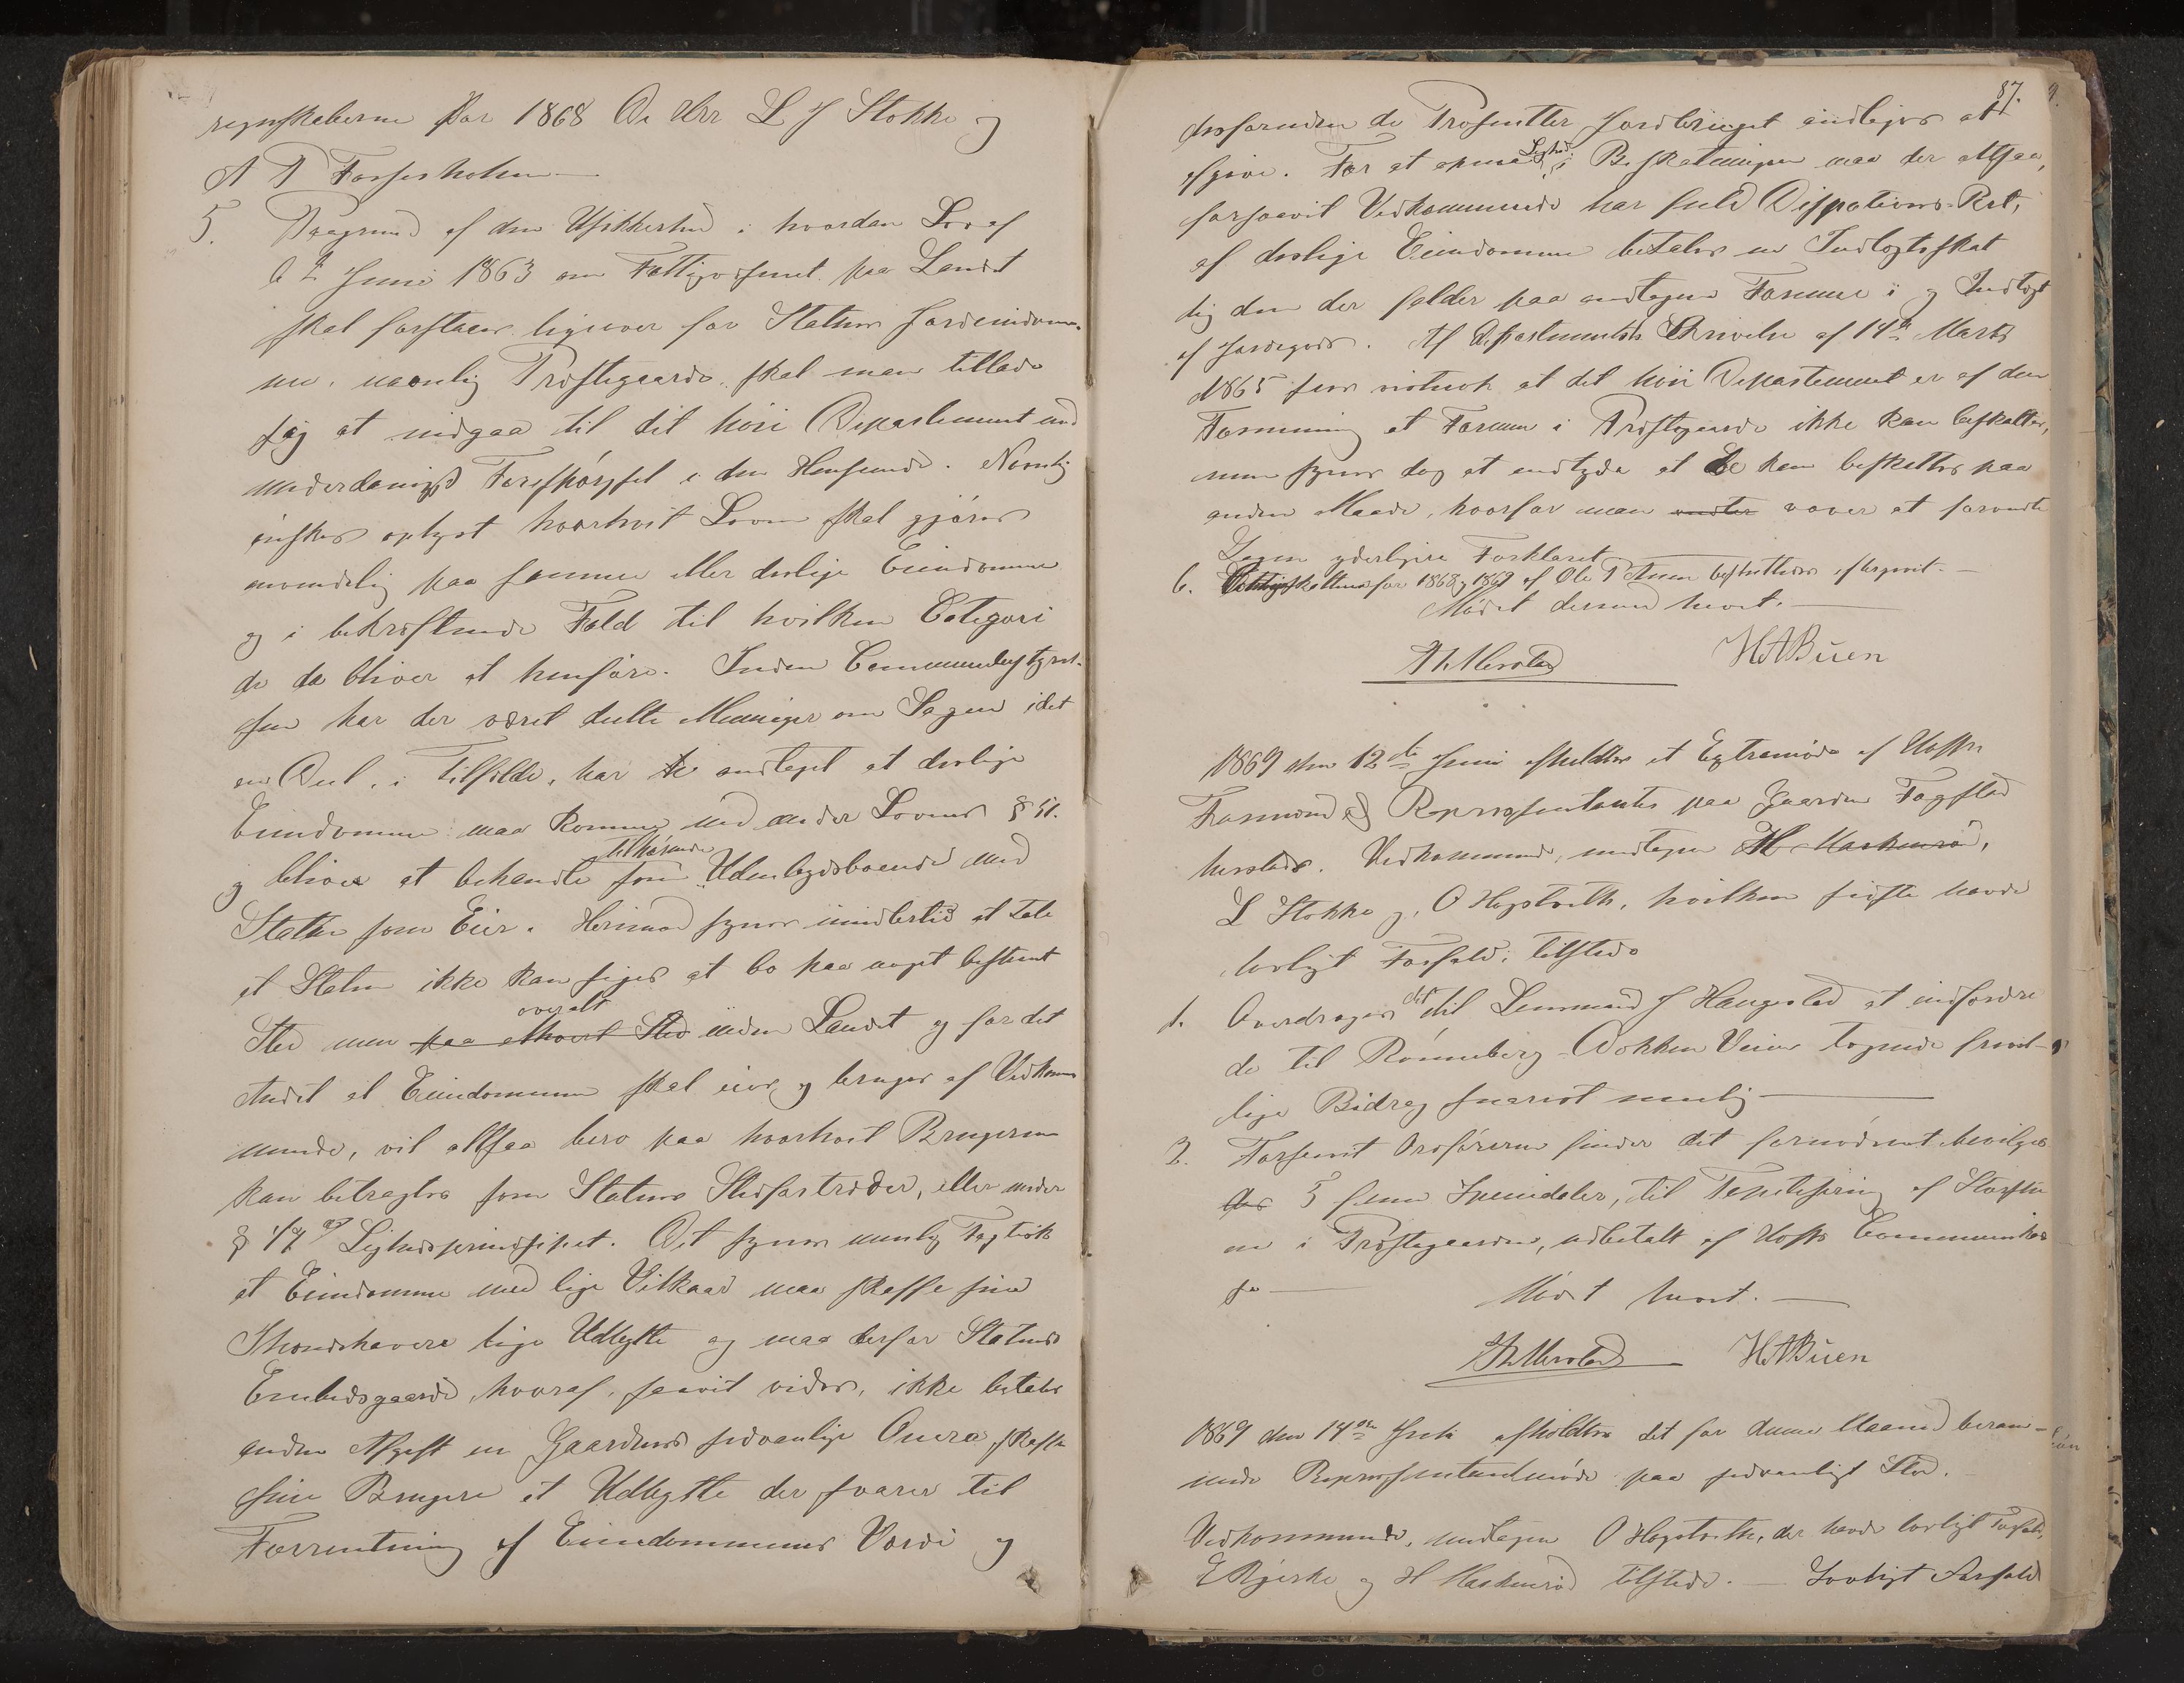 regnskaberne for 1868 De Hrr L J Stokke og
A P Forsesholm —
5. Paagrund af den Usikkerhed i hvordan Lov af
6te Juni 1863 om Fattigvæsenet paa Landet
skal forstaaes ligeover for Statens Jordeiendom-
me, navnlig Præstegaarde, skal man tillade
sig at indgaa til det höie Departement med
underdanigst Forespørgsel i den Henseende. Navnlig
önskes oplyst hvorhvit Loven skal gjøres
anvendelig paa samme eller deslige Eiendomme
og i bekræftende Fald til hvilken Categori
de da bliver at henføre. Inden Communebestyrel-
sen har der været deelte Meninger om Sagen idet
en Deel, i Tilfælde, har antaget at deslige
Eiendomme maa komme ind under Lovens § 51.
og bliver at behandle som tilhørende Udenbygdsboende med
Staten som Eier. Herimod synes imidlertid at tale
at Staten ikke kan siges at bo paa noget bestemt
Sted men paa ethvert Sted overalt inden Landet og for det
Andet at Eiendommen skal eies og bruges af Vedkom-
mende, vil altsaa bero paa hvorhvit Brugerne
kan betragtes som Statens Stedfortræder, eller under
§ 47 Lighedsprindsipet. Det synes nemlig Faktisk
at Eiendomme med lige Vilkaar maa skaffe sine
Ihændehavere lige Udbytte og maa derfor Statens
Embedsgaarde, hvoraf, saavit vides, ikke betales
anden Afgift en Gaardens sedvanlige Onera skaffe
sine Brugere et Udbytte der svarer til
Forrentning af Eiendommenes Værdi og
87.
desforuden de Prosentter Jordbruget endlejes at
afgive. For at opnaa Lighed i Beskatningen maa der altsaa,
forsaavit Vedkommende har fuld Dispotions-Ret,
af deslige Eiendomme betales en Indtægtsskat
lig den der falder paa antagen Formue i og Indtægt
af Jordegods. Af Departementets Skrivelse af 14de Marts
1865 sees vistnok at det höie Departement er af den
Formening at Formue i Præstegaarde ikke kan beskattes,
men synes dog at antyde at De kan beskattes paa
anden Maade, hvorfor man vover at forvente
Sagen yderligere Forklaret.
6. Fattigskatten for 1868 og 1869 af Ole P besluttedes eftergivet. —
Mødet dermed hævet. —
HABüen
1869 den 12te Juni afholdtes et Extramøde af Hoffs
Formænd og Repræsentanter paa Gaarden Fogstad
herstæds. Vedkommende, undtagen H Haskerud,
L Stokke og O Hogstvedt, hvilken sidste havde
lovligt Forfald, tilstede
1. Overdrages det til Lensmand J Haugestad at indfordre
de til Rönneberg-Dokken Veien tegnede frivil-
lige Bidrag snarest mulig —
2. Forsaavit Ordføreren finder det fornødent bevilges
der 5 fem Speciedaler, til Tapetsering af Storstu
en i Præstegaarden, udbetalt af Hoffs Communekas
se — Mødet hævet. —
HABüen
1869 den 14de Juli afholdtes det for denne Maaned beram-
mede Repræsentantmøde paa sedvanligt Sted.
Vedkommende, undtagen O Hogstvedt, der havde lovligt Forfald,
E Bjerke og H Haskerud tilstede. — Lovligt Forfald